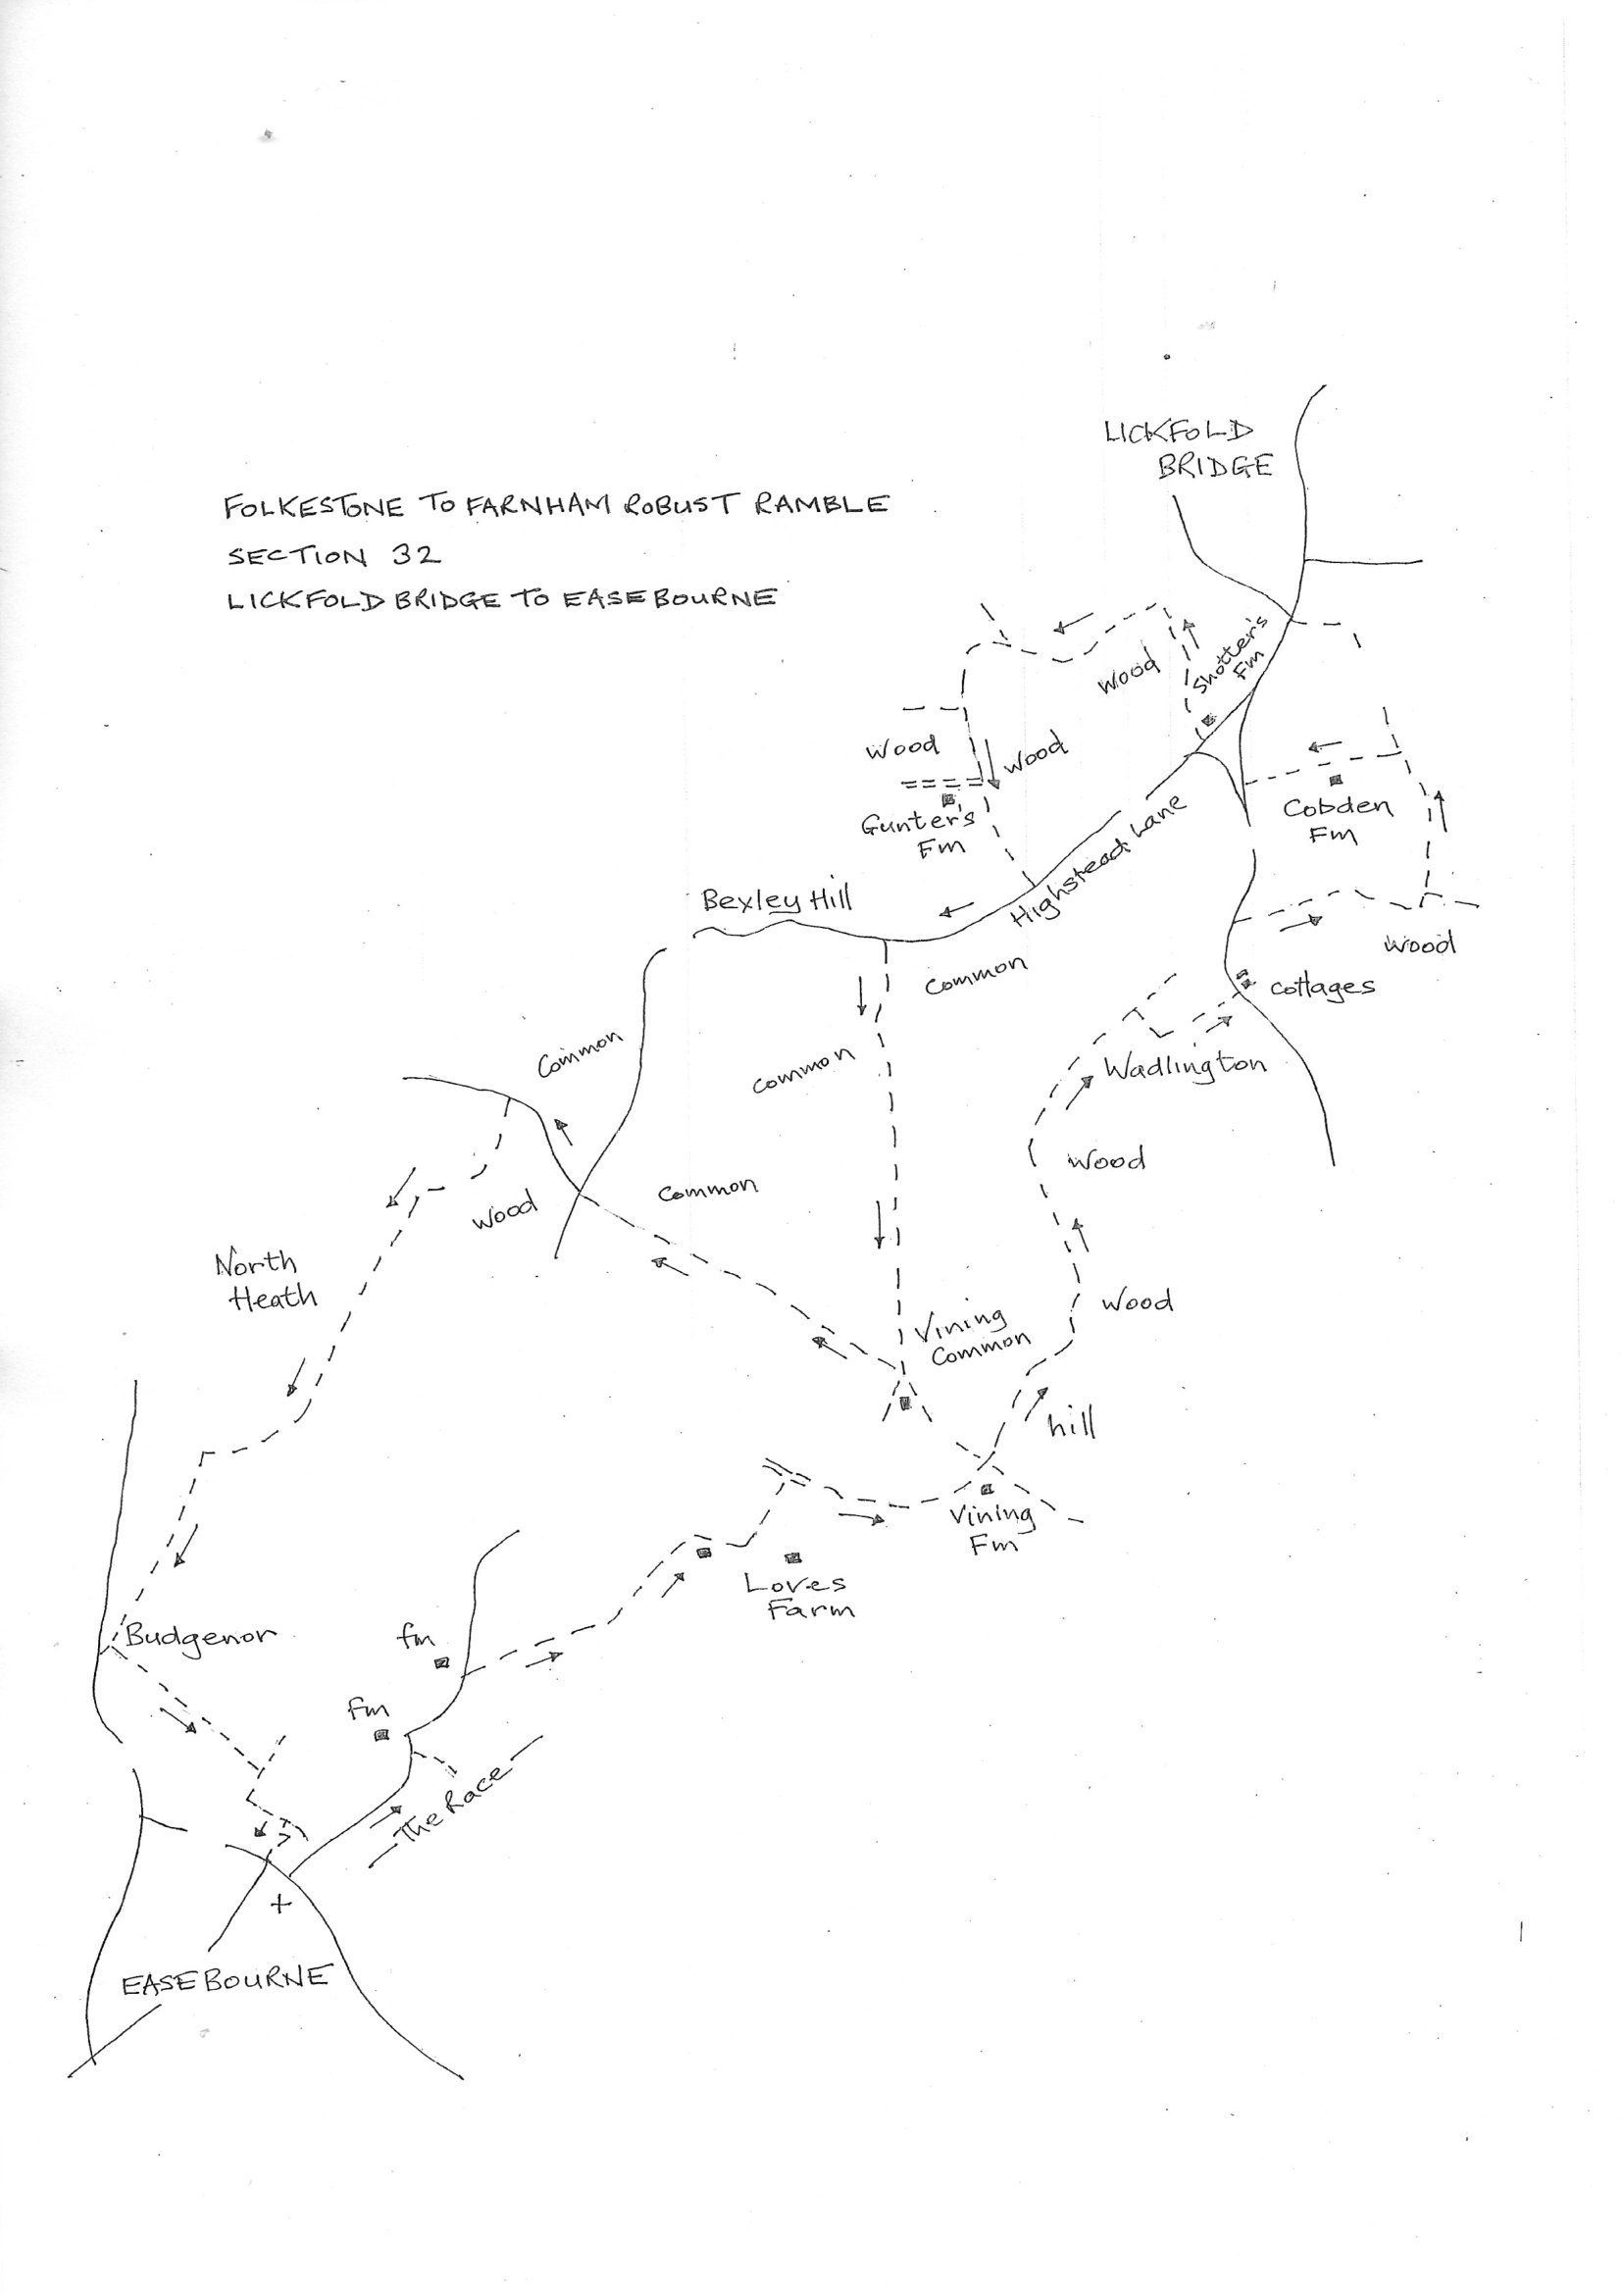 LICKFOLD
BRIDGE
FOLKESTONE TO FARNHAM ROBUST RAMBLE
SECTION 32
LICKFOLD BRIDGE TO EASEBOURNE
Shotter's
Fm
Wood
Wood
Wood
Gunter's
Fm
Cobden
Fm
Highstead Lane
Bexley Hill
Wood
Common
Cottages
Common
Common
Wadlington
Wood
Common
Wood
North
Heath
Wood
Vining
Common
hill
Vining
Fm
Loves
Farm
Budgenor
fm
fm
The Race
EASEBOURNE